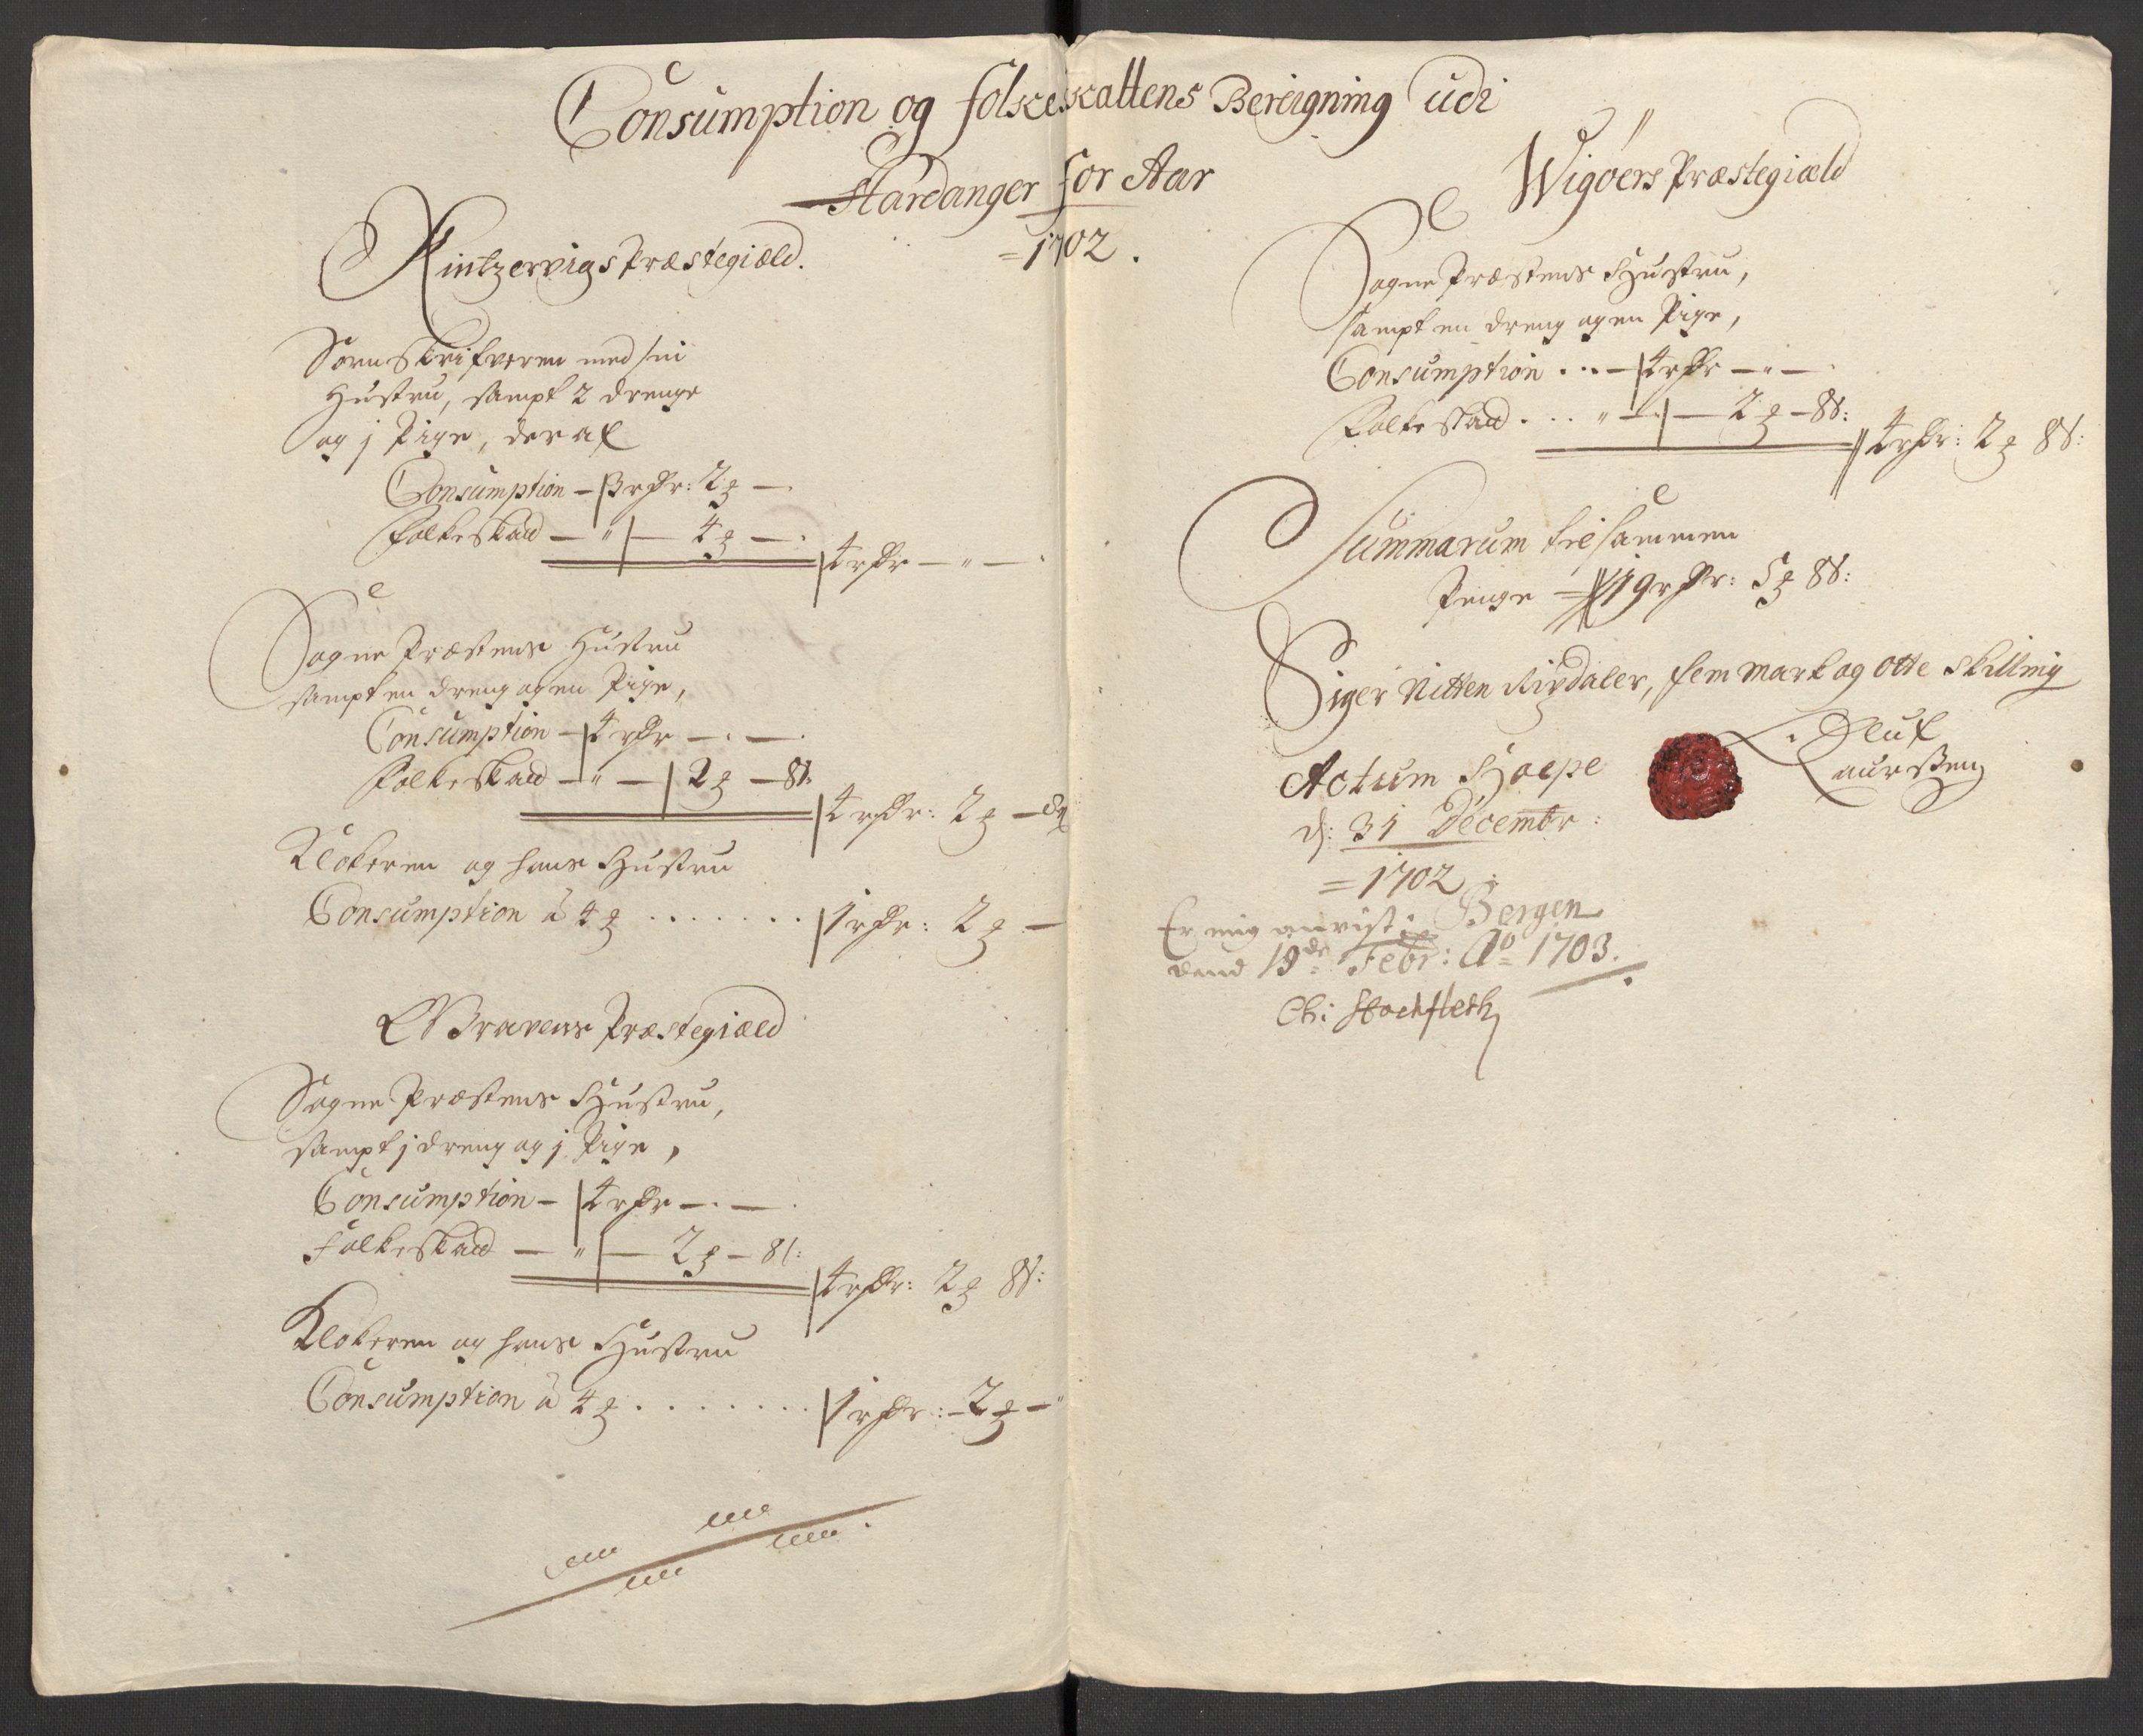 Consumption og folkeskattens Bereigning udi
Hardanger for Aar
=1702.
Kintzervigs Præstegiæld.
Sornskrifveren med sin
Hustru, sampt 2 drenge
og j Pige, deraf
Consumption - 3 rdr: 2 ꝳ -
Folkeskatt - " - 4 ꝳ - .
4 rdr - " -
Sogne Præstens Hustru
sampt en dreng og en Pige,
Consumption - 4 rdr - . -
Folkeskatt - " - 2 ꝳ - 8 s:
4 rdr: 2 ꝳ - 8 s
Klokeren og hans Hustru
Consumption à 4 ꝳ . . . . . . . 1 rdr: 2 ꝳ -
Gravens Præstegiæld
Sogne Præstens Hustru,
sampt j dreng og j Pige,
Consumption - 4 rdr - . -
Folkeskatt - " - 2 ꝳ - 8 s:
4 rdr: 2 ꝳ 8 s:
Klokeren og hans Hustru
Consumption à 4 ꝳ . . . . . . . 1 rdr: - 2 ꝳ - "
Wigøers Præstegiæld
Sogne Præstens Hustru,
sampt en dreng og en Pige,
Consumption . . . - 4 rdr - " -
Folkeskatt . . . " - 2 ꝳ - 8 s:
4 rdr: 2 ꝳ 8 s:
Summarum tilsammen
Penge = 19 rdr: 5 ꝳ 8 s:
Siger Nitten Rixdaler, fem mark og otte skilling
Actum Hoepe
d: 31 Decembr:
=1702
Oluf
Laurssen
Er mig anvist i Bergen
dend 19de Febr: Ao 1703.
Ch: Stockfleth